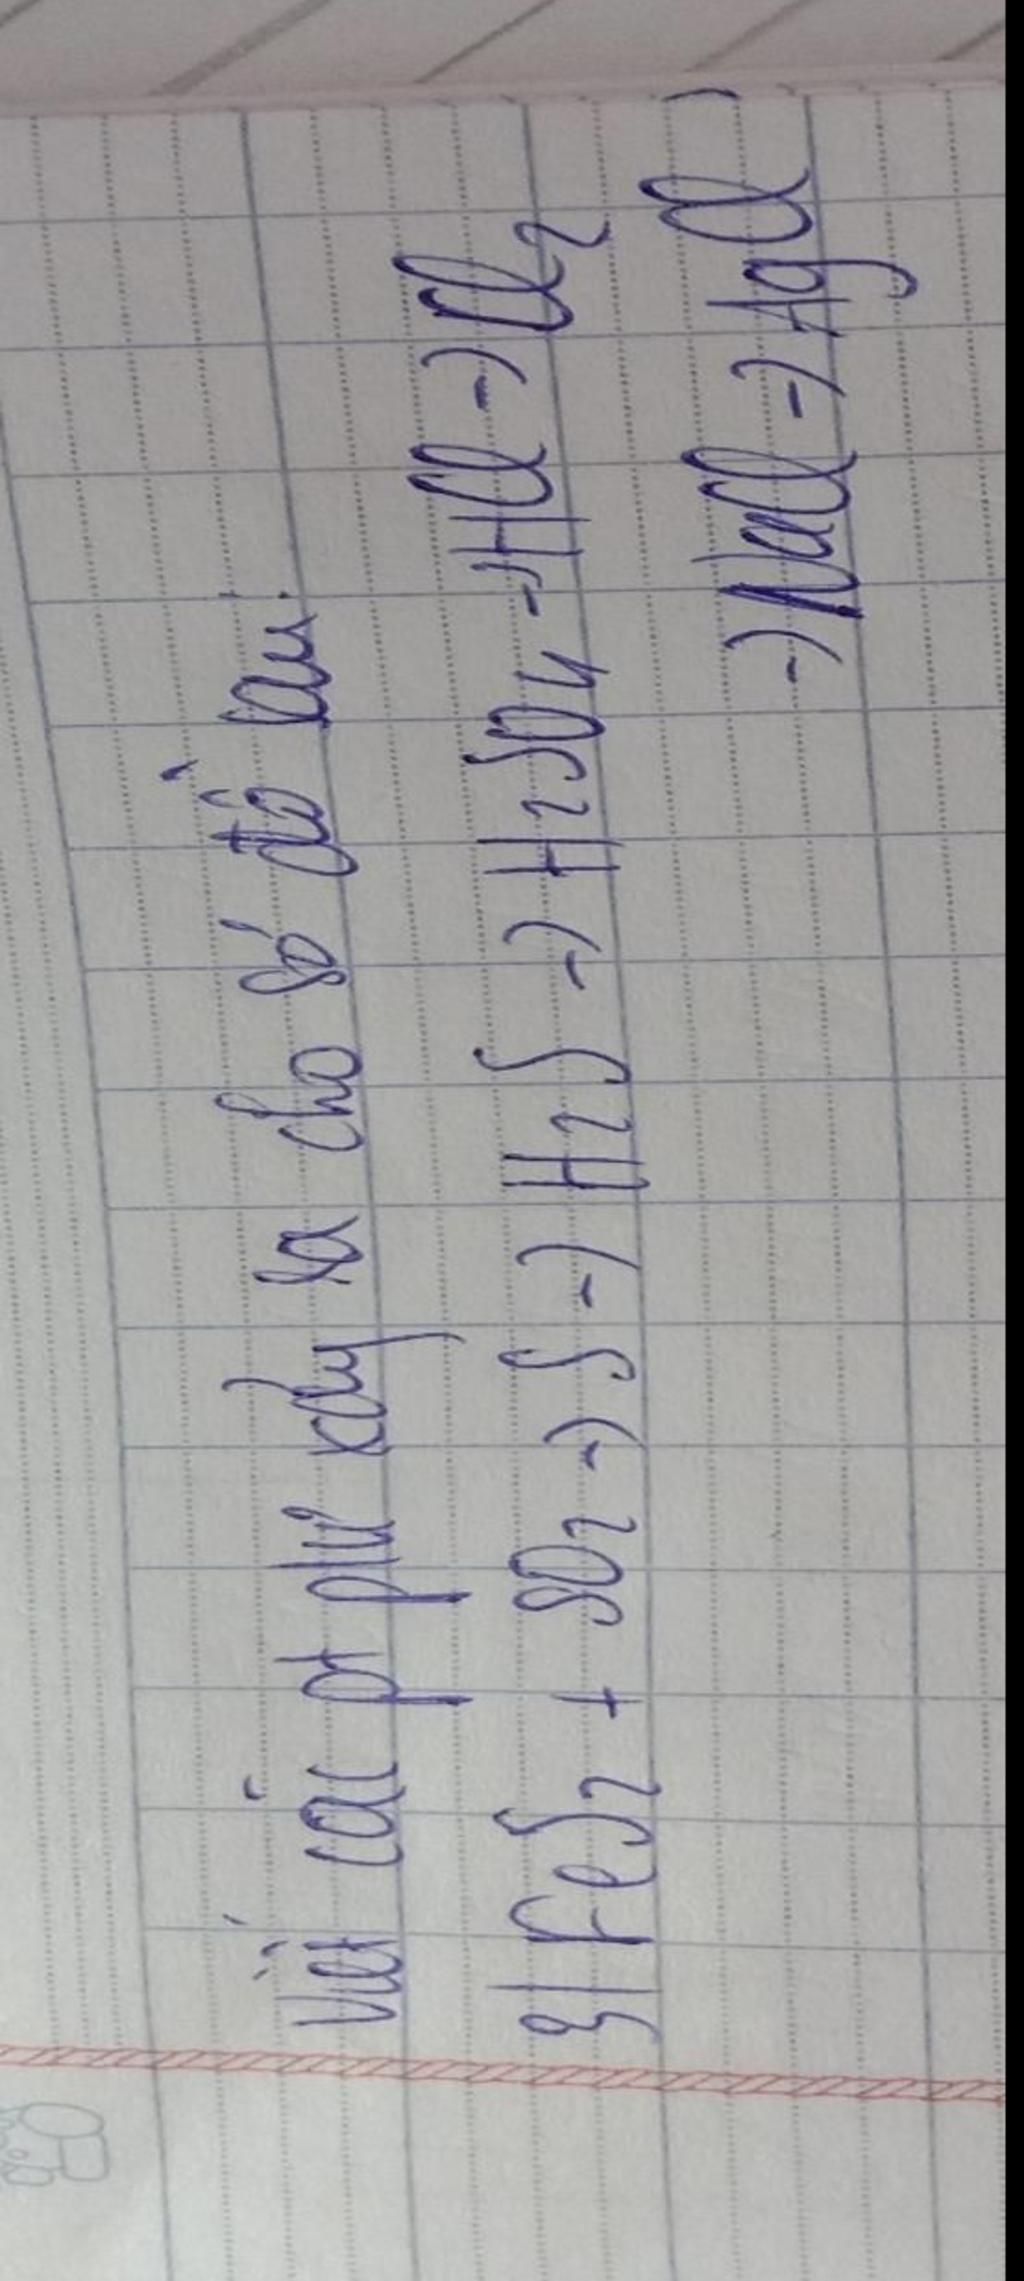 Viết các pt plư xảy ra cho sơ đồ sau:
3| FeS2 + SO2 -> S -> H2S -> H2SO4 -> HCl -> Cl2
-> NaCl -> AgCl